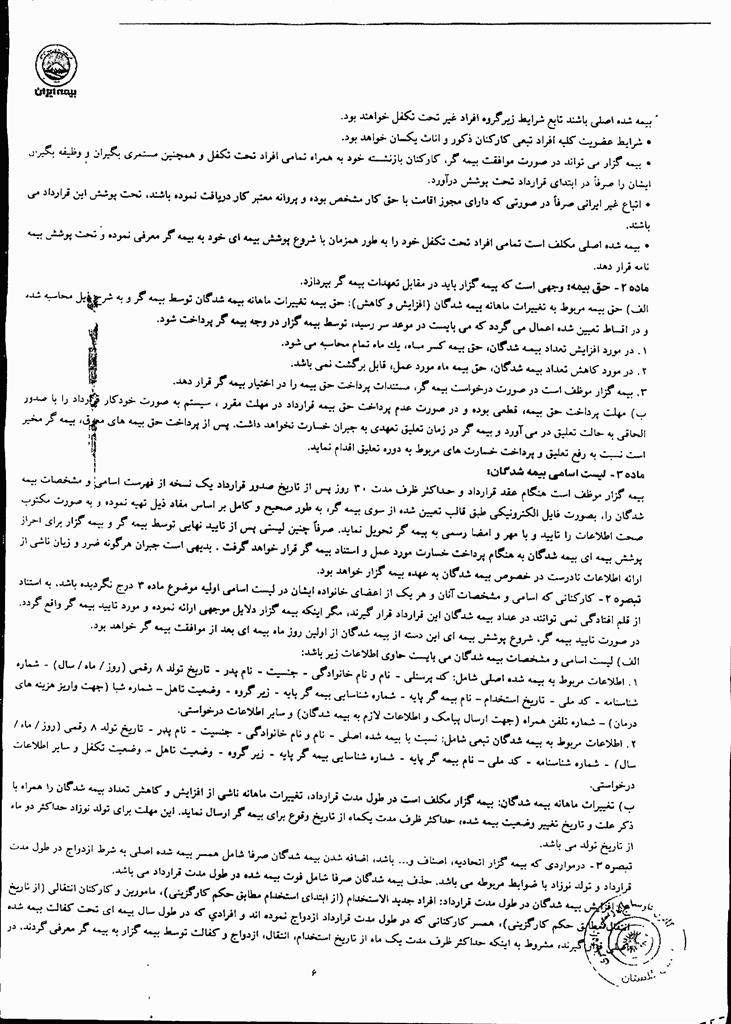 بیمه ایران
بیمه شده اصلی باشند تابع شرایط زیرگروه افراد غیر تحت تکفل خواهند بود.
• شرایط عضویت کلیه افراد تبعی کارکنان ذکور و اناث یکسان خواهد بود.
• بیمه گزار می تواند در صورت موافقت بیمه گر، کارکنان بازنشسته خود به همراه تمامی افراد تحت تکفل و همچنین مستمری بگیران و وظیفه بگیران
ایشان را صرفاً در ابتدای قرارداد تحت پوشش درآورد.
• اتباع غیر ایرانی صرفاً در صورتی که دارای مجوز اقامت با حق کار مشخص بوده و پروانه معتبر کار دریافت نموده باشند، تحت پوشش این قرارداد می
باشند.
• بیمه شده اصلی مکلف است تمامی افراد تحت تکفل خود را به طور همزمان با شروع پوشش بیمه ای خود به بیمه گر معرفی نموده و تحت پوشش بیمه
نامه قرار دهد.
ماده ۲- حق بیمه: وجهی است که بیمه گزار باید در مقابل تعهدات بیمه گر بپردازد.
الف) حق بیمه مربوط به تغییرات ماهانه بیمه شدگان (افزایش و کاهش): حق بیمه تغییرات ماهانه بیمه شدگان توسط بیمه گر و به شرح ذیل محاسبه شده
و در اقساط تعیین شده اعمال می گردد که می بایست در موعد سر رسید، توسط بیمه گزار در وجه بیمه گر پرداخت شود.
۱. در مورد افزایش تعداد بیمه شدگان، حق بیمه کسر ماه، یك ماه تمام محاسبه می شود.
۲. در مورد کاهش تعداد بیمه شدگان، حق بیمه ماه مورد عمل، قابل برگشت نمی باشد.
۳. بیمه گزار موظف است در صورت درخواست بیمه گر، مستندات پرداخت حق بیمه را در اختیار بیمه گر قرار دهد.
ب) مهلت پرداخت حق بیمه، قطعی بوده و در صورت عدم پرداخت حق بیمه قرارداد در مهلت مقرر ، سیستم به صورت خودکار قرارداد را با صدور
الحاقی به حالت تعلیق در می آورد و بیمه گر در زمان تعلیق تعهدی به جبران خسارت نخواهد داشت. پس از پرداخت حق بیمه های معوق، بیمه گر مخیر
است نسبت به رفع تعلیق و پرداخت خسارت های مربوط به دوره تعلیق اقدام نماید.
ماده ۳- لیست اسامی بیمه شدگان:
بیمه گزار موظف است هنگام عقد قرارداد و حداکثر ظرف مدت ۳۰ روز پس از تاریخ صدور قرارداد یک نسخه از فهرست اسامی و مشخصات بیمه
شدگان را، بصورت فایل الکترونیکی طبق قالب تعیین شده از سوی بیمه گر، به طور صحیح و کامل بر اساس مفاد ذیل تهیه نموده و به صورت مکتوب
صحت اطلاعات را تایید و با مهر و امضا رسمی به بیمه گر تحویل نماید. صرفاً چنین لیستی پس از تایید نهایی توسط بیمه گر و بیمه گزار برای احراز
پوشش بیمه ای بیمه شدگان به هنگام پرداخت خسارت مورد عمل و استناد بیمه گر قرار خواهد گرفت . بدیهی است جبران هرگونه ضرر و زیان ناشی از
ارائه اطلاعات نادرست در خصوص بیمه شدگان به عهده بیمه گزار خواهد بود.
تبصره ۲- کارکنانی که اسامی و مشخصات آنان و هر یک از اعضای خانواده ایشان در لیست اسامی اولیه موضوع ماده ۳ درج نگردیده باشد. به استناد
از قلم افتادگی نمی توانند در عداد بیمه شدگان این قرارداد قرار گیرند، مگر اینکه بیمه گزار دلایل موجهی ارائه نموده و مورد تایید بیمه گر واقع گردد.
در صورت تایید بیمه گر، شروع پوشش بیمه ای این دسته از بیمه شدگان از اولین روز ماه بیمه ای بعد از موافقت بیمه گر خواهد بود.
الف) لیست اسامی و مشخصات بیمه شدگان می بایست حاوی اطلاعات زیر باشد:
۱. اطلاعات مربوط به بیمه شده اصلی شامل: کد پرسنلی - نام و نام خانوادگی - جنسیت - نام پدر - تاریخ تولد ۸ رقمی (روز / ماه / سال) - شماره
شناسنامه - کد ملی - تاریخ استخدام - نام بیمه گر پایه - شماره شناسایی بیمه گر پایه - زیر گروه - وضعیت تاهل - شماره شبا (جهت واریز هزینه های
درمان) - شماره تلفن همراه (جهت ارسال پیامک و اطلاعات لازم به بیمه شدگان) و سایر اطلاعات درخواستی.
۲. اطلاعات مربوط به بیمه شدگان تبعی شامل: نسبت با بیمه شده اصلی - نام و نام خانوادگی - جنسیت - نام پدر - تاریخ تولد ۸ رقمی (روز / ماه /
سال) - شماره شناسنامه - کد ملی - نام بیمه گر پایه - شماره شناسایی بیمه گر پایه - زیر گروه - وضعیت تاهل - وضعیت تکفل و سایر اطلاعات
درخواستی.
ب) تغییرات ماهانه بیمه شدگان: بیمه گزار مکلف است در طول مدت قرارداد، تغییرات ماهانه ناشي از افزایش و کاهش تعداد بیمه شدگان را همراه با
ذکر علت و تاریخ تغییر وضعیت بیمه شده، حداکثر ظرف مدت یکماه از تاریخ وقوع برای بیمه گر ارسال نماید. این مهلت برای تولد نوزاد حداکثر دو ماه
از تاریخ تولد می باشد.
تبصره ۳- درمواردی که بیمه گزار اتحادیه، اصناف و... باشد، اضافه شدن بیمه شدگان صرفا شامل همسر بیمه شده اصلی به شرط ازدواج در طول مدت
قرارداد و تولد نوزاد با ضوابط مربوطه می باشد. حذف بیمه شدگان صرفا شامل فوت بیمه شده در طول مدت قرارداد می باشد.
ج) افزایش بیمه شدگان در طول مدت قرارداد: افراد جدید الاستخدام (از ابتدای استخدام مطابق حکم کارگزینی)، مامورین و کارکنان انتقالی (از تاریخ
انتقال مطابق حکم کارگزینی)، همسر کارکنانی که در طول مدت قرارداد ازدواج نموده اند و افرادي که در طول سال بیمه ای تحت کفالت بیمه شده
اصلی قرار گیرند، مشروط به اینکه حداکثر ظرف مدت یک ماه از تاریخ استخدام، انتقال، ازدواج و کفالت توسط بیمه گزار به بیمه گر معرفی گردند. در
۶